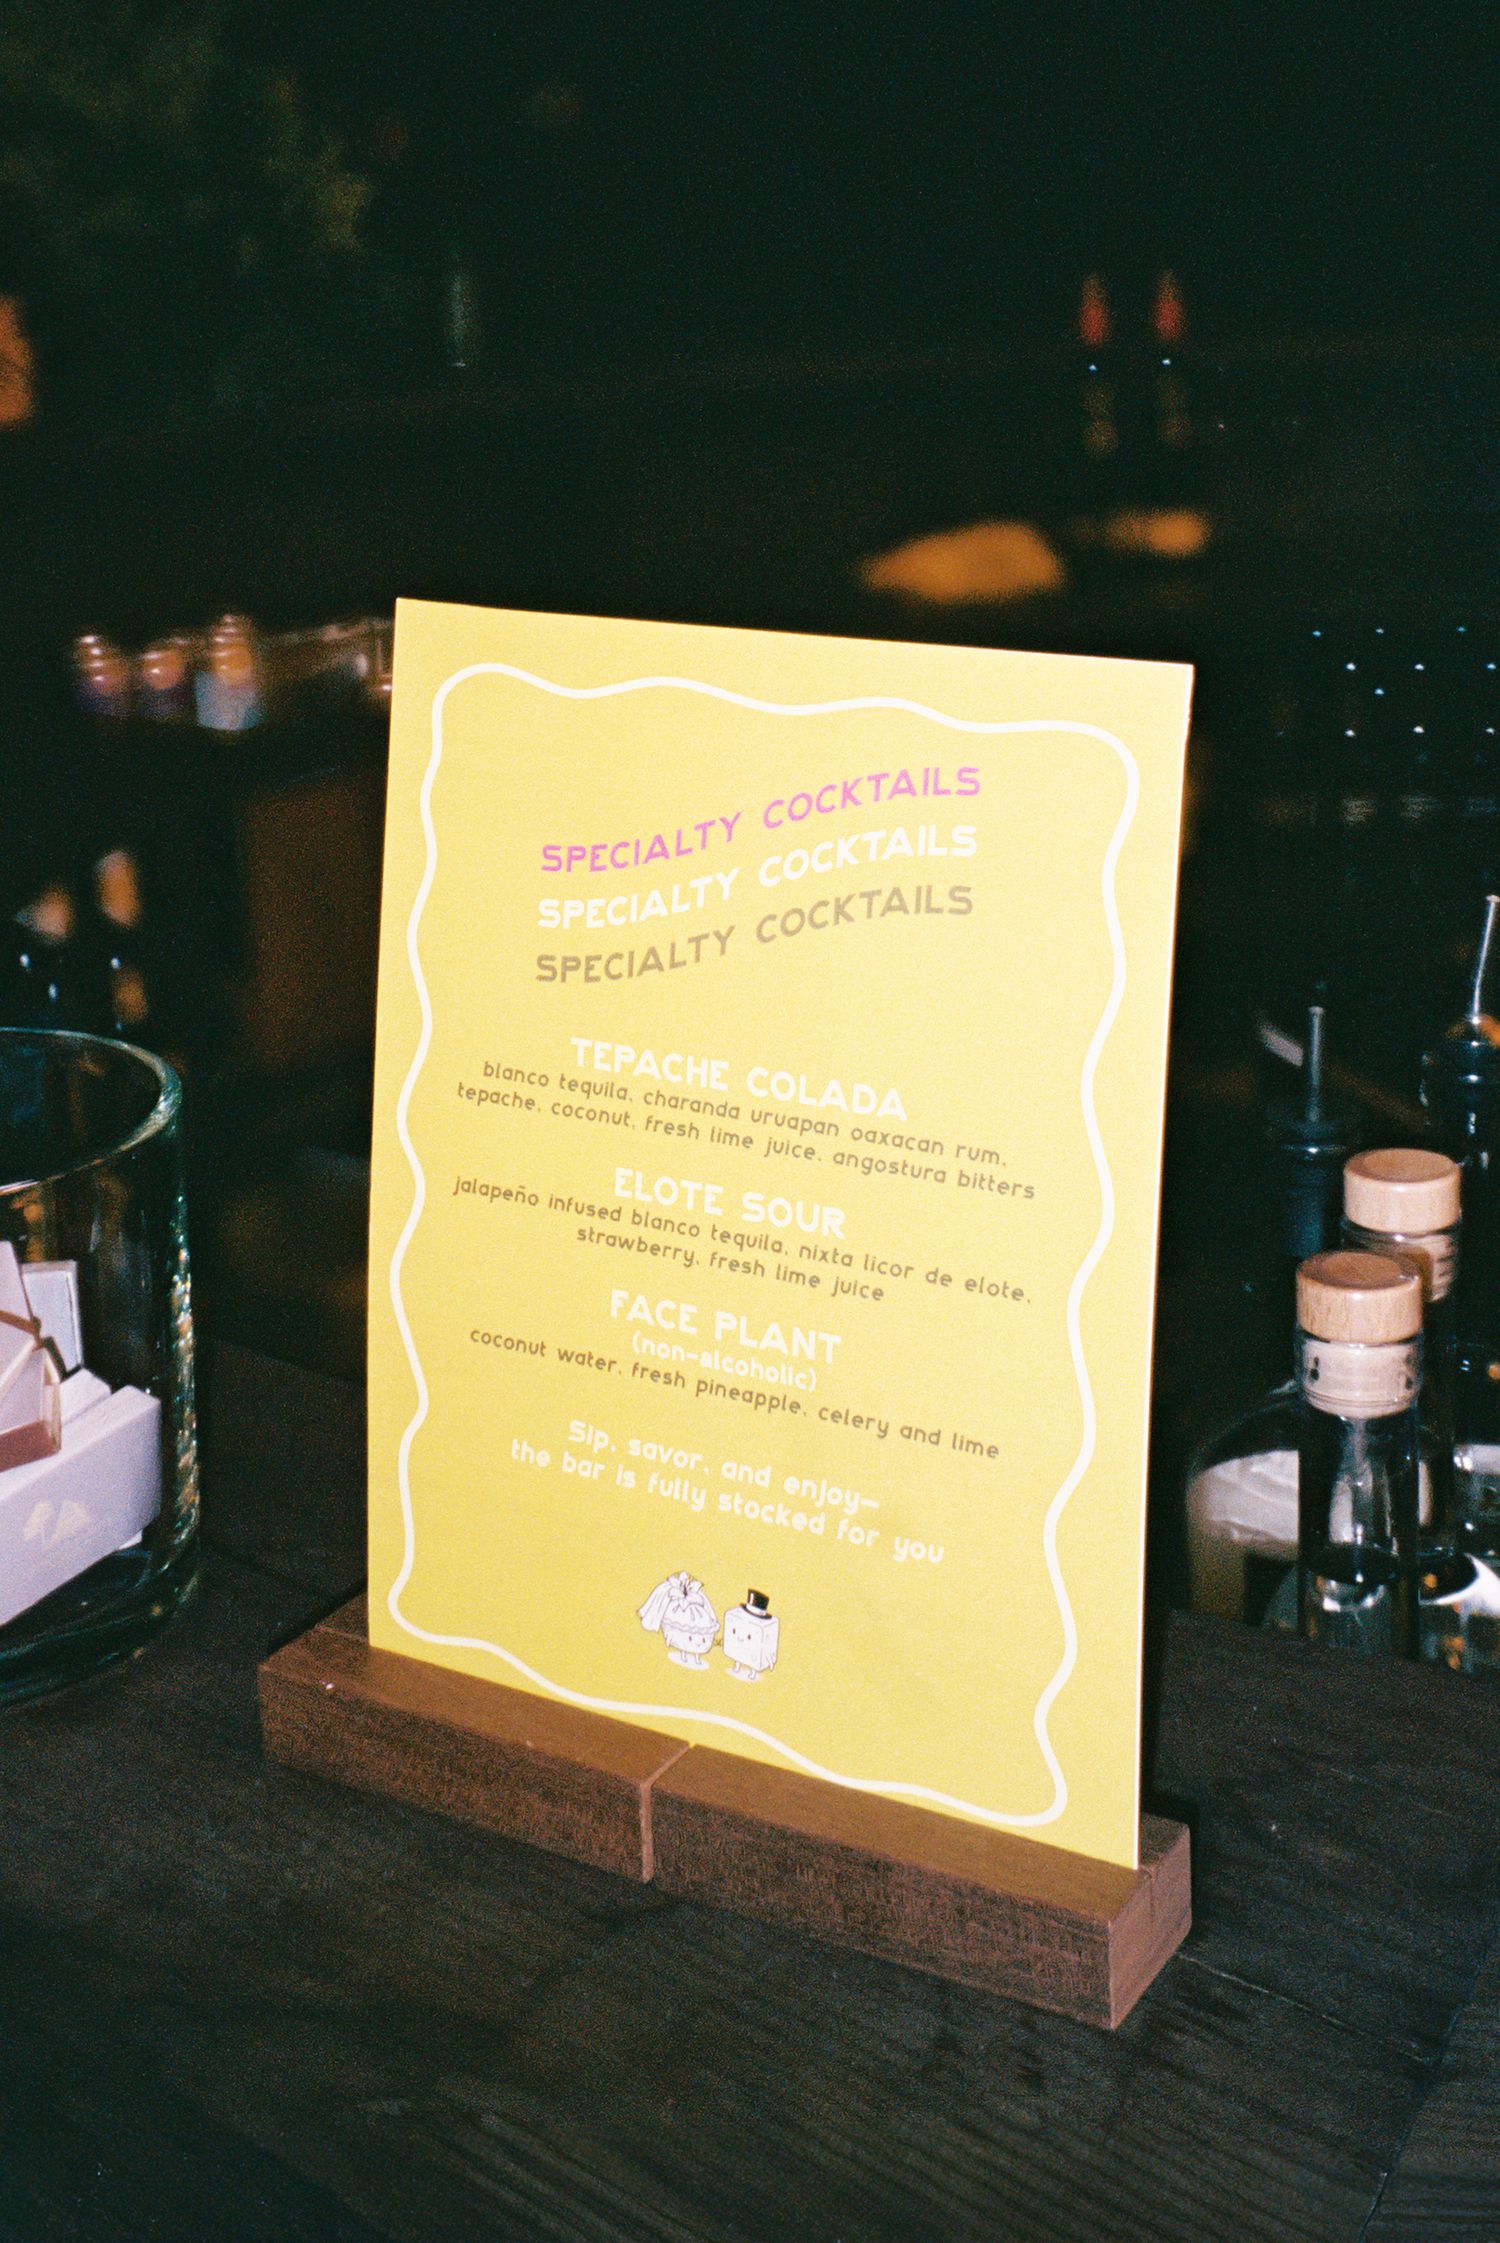 SPECIALTY COCKTAILS
SPECIALTY COCKTAILS
SPECIALTY COCKTAILS
TEPACHE COLADA
blanco tequila, charanda uruapan oaxacan rum,
tepache, coconut, fresh lime juice, angostura bitters
ELOTE SOUR
jalapeño infused blanco tequila, nixta licor de elote,
strawberry, fresh lime juice
FACE PLANT
(non-alcoholic)
coconut water, fresh pineapple, celery and lime
Sip, savor, and enjoy—
the bar is fully stocked for you